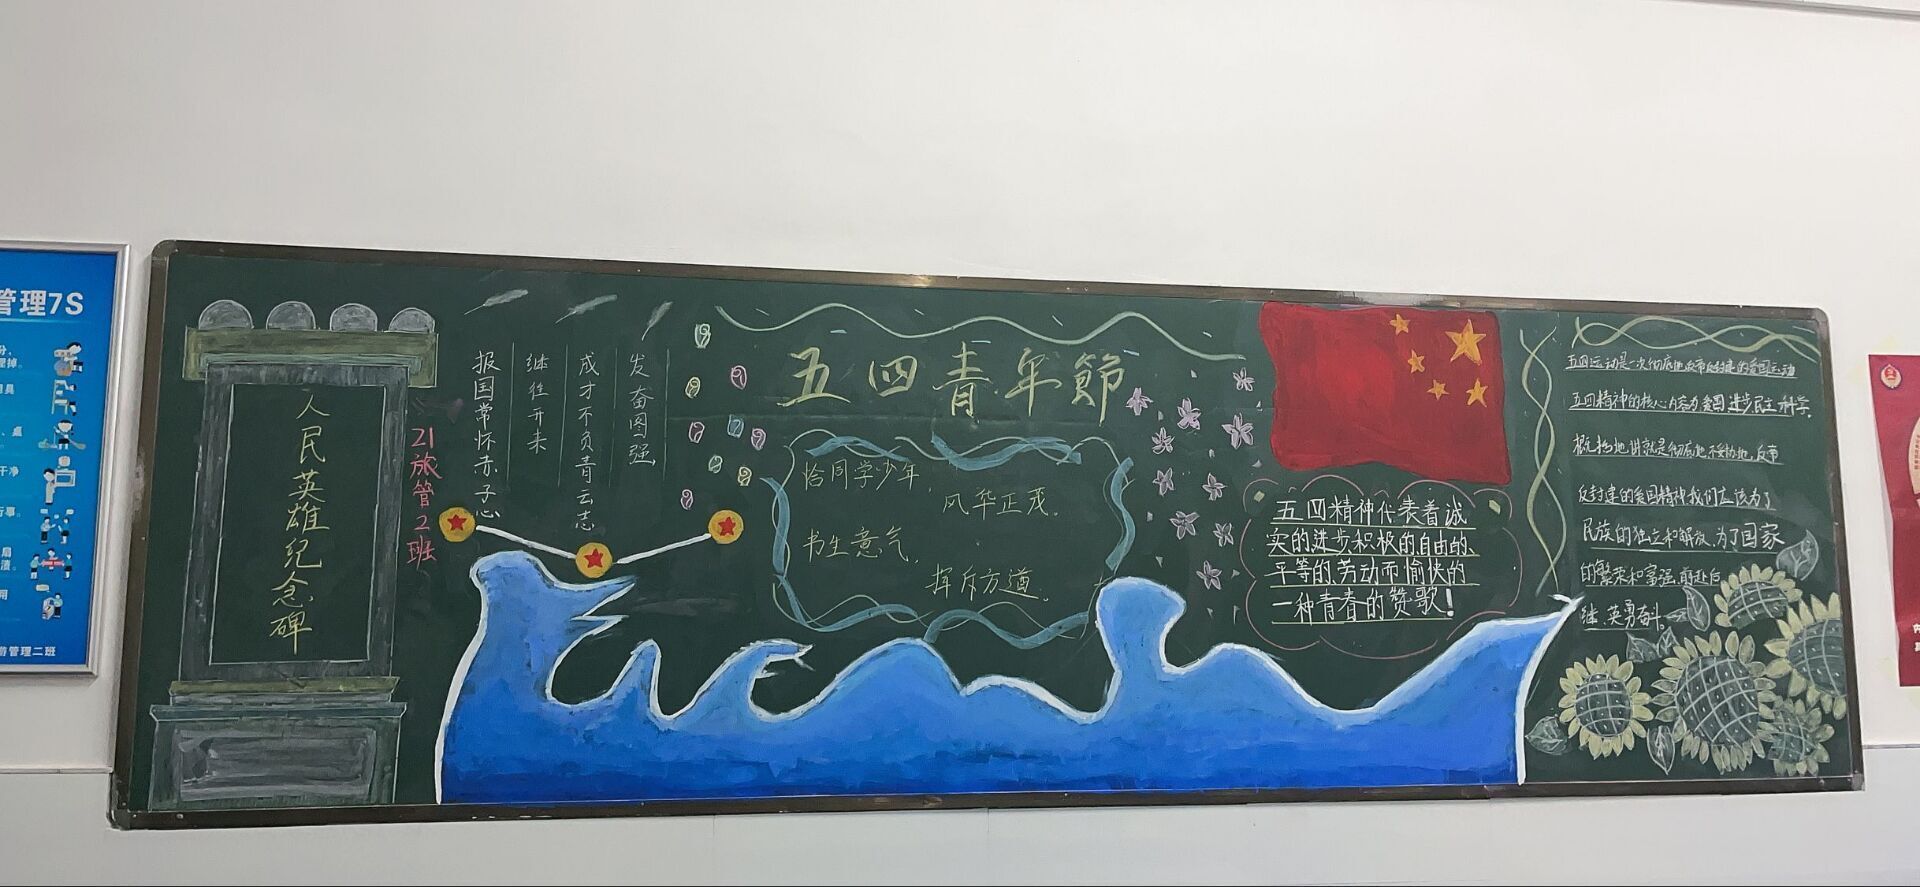 管理7S
游管理二班
人民英雄纪念碑
21旅管2班
报国常怀赤子志
继往开来
成才不负青云志
发奋图强
五四青年節
恰同学少年,
风华正茂。
书生意气,
挥斥方遒。
五四精神代表着诚
实的、进步积极的自由的、
平等的、劳动而愉快的
一种青春的赞歌!
五四运动是一次彻底地反帝反封建的爱国运动
五四精神的核心内容为爱国 进步 民主 科学。
概括地讲就是彻底地、不妥协地、反帝
反封建的爱国精神我们应该为了
民族的独立和解放、为了国家
的繁荣和富强、前赴后
继、英勇奋斗。